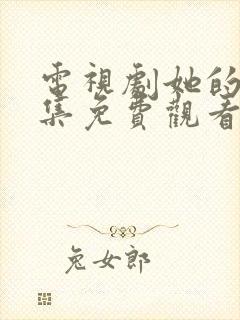 電視劇她的
集免費觀看
兔女郎